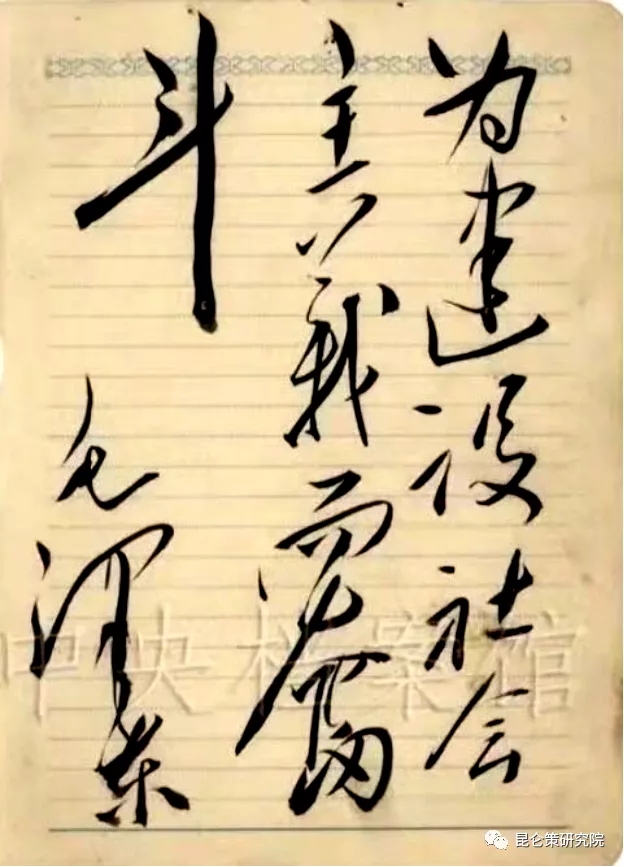 为建设社会
主義而奮
斗
毛澤东
中央档案馆
昆仑策研究院